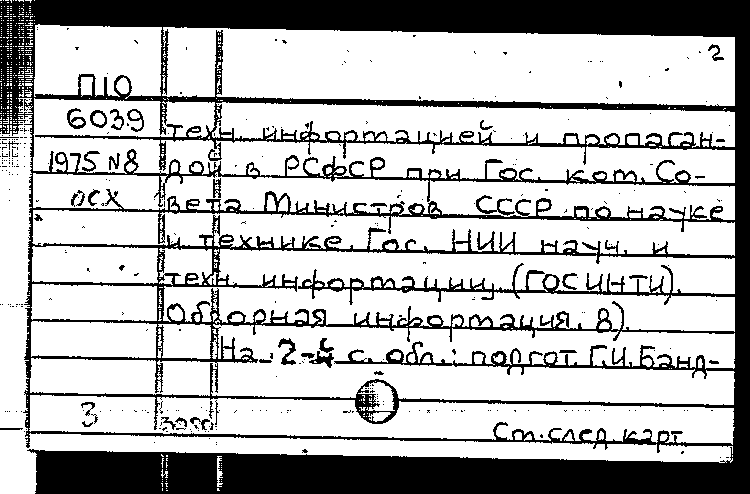 2
П10
6039 техн. информацией и пропаган-
1975 N8 дой в РСФСР при Гос. ком. Со-
осх вета Министров СССР по науке
и технике. Гос. НИИ науч. и
техн. информации. (ГОСИНТИ).
Обзорная информация. 8).
На 2-й с. обл.: подгот. Г.И. Банд-
3
См. след. карт.